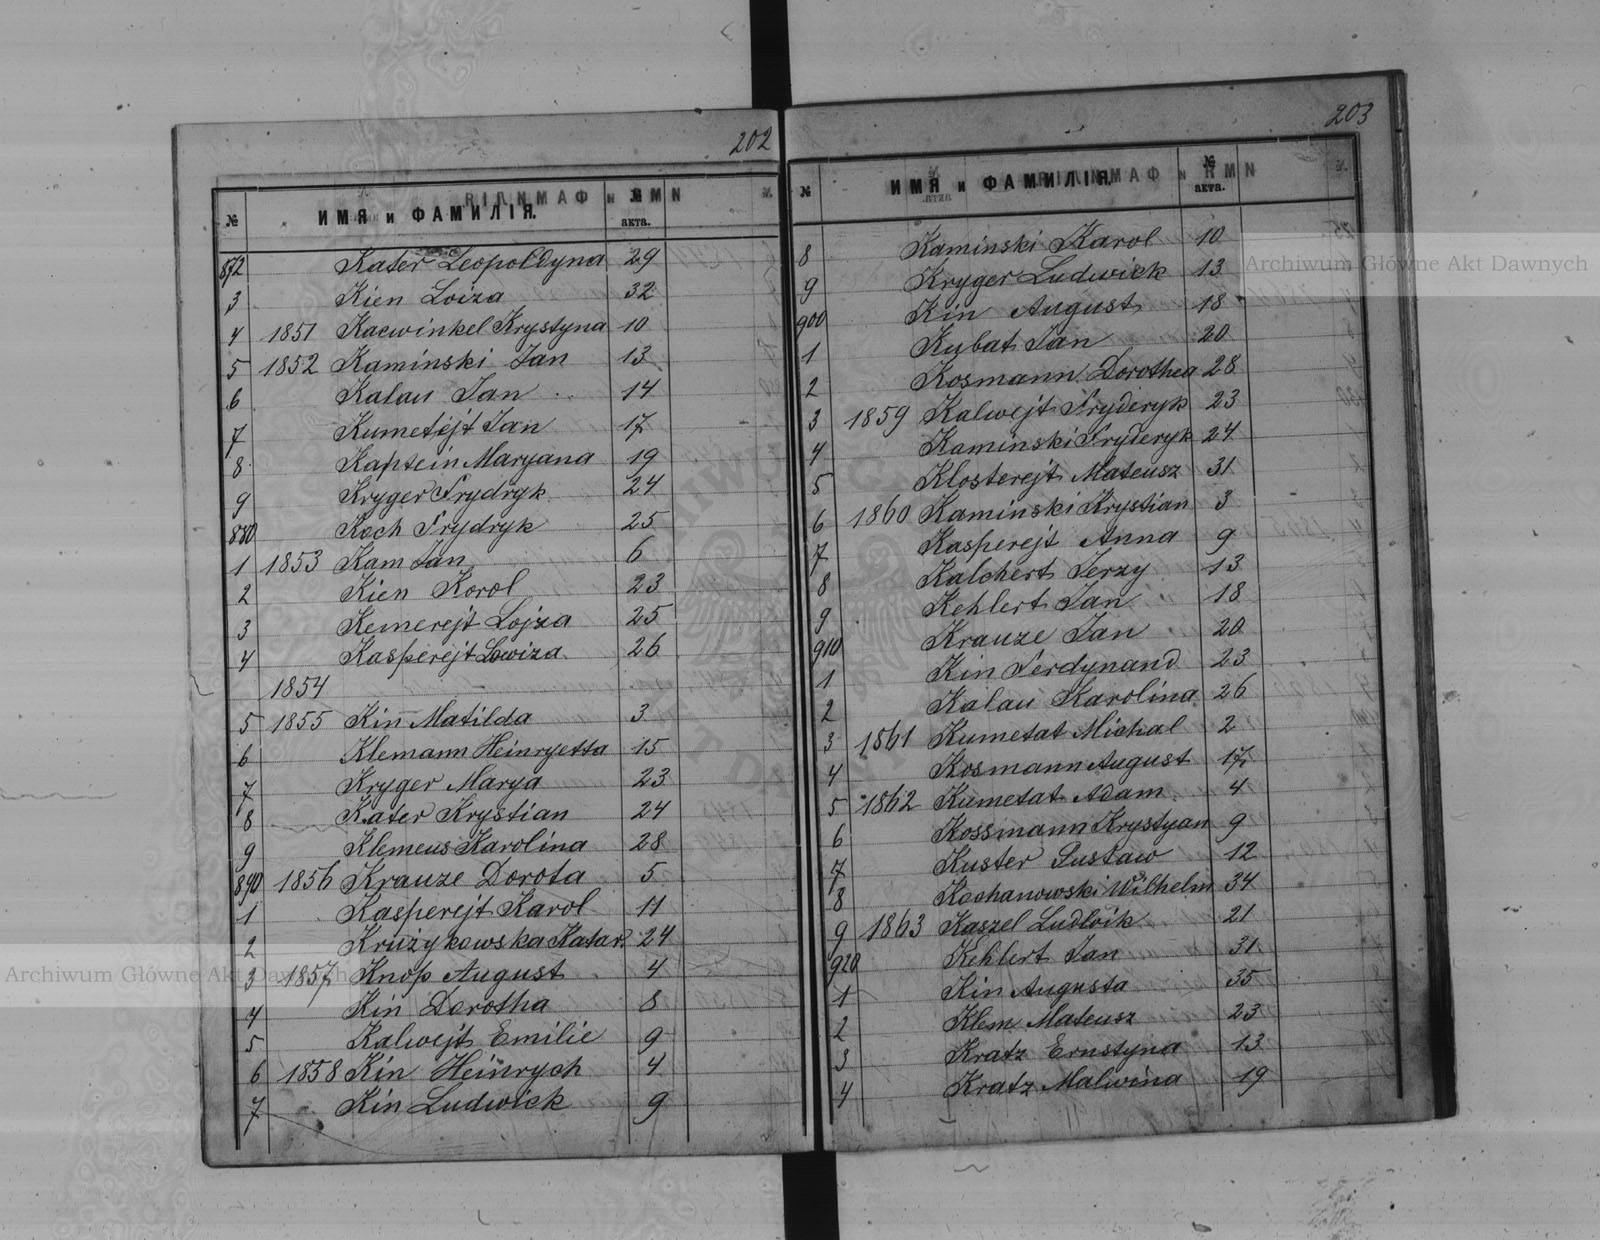 202
№ ИМЯ и ФАМИЛІЯ. № акта.
872 Kater Leopoldyna 29
3 Kien Loiza 32
4 1851 Kacwinkel Krystyna 10
5 1852 Kamínski Jan 13
6 Kalau Jan 14
7 Kumetejt Jan 17
8 Kaptein Maryana 19
9 Kryger Frydryk 24
880 Koch Frydryk 25
1 1853 Kam Jan 6
2 Kien Korol 23
3 Kemerejt Lojza 25
4 Kasperejt Lowiza 26
1854
5 1855 Kin Matilda 3
6 Klemann Heinryetta 15
7 Kryger Marya 23
8 Kater Krystian 24
9 Klemeus Karolina 28
890 1856 Krauze Dorota 5
1 Kasperejt Karol 11
2 Kružykowska Katar. 24
3 1857 Knop August 4
4 Kin Dorotha 8
5 Kalwejt Emilie 9
6 1858 Kin Heinrych 4
7 Kin Ludwick 9
203
№ ИМЯ и ФАМИЛІЯ. № акта.
8 Kamínski Karol 10
9 Kryger Ludwick 13
900 Kin August 18
1 Kubat Jan 20
2 Kosmann Dorothea 28
3 1859 Kalwejt Fryderyk 23
4 Kamínski Fryderyk 24
5 Klosterejt Mateusz 31
6 1860 Kamínski Krystian 3
7 Kasperejt Anna 9
8 Kalchert Jerzy 13
9 Kehlert Jan 18
910 Krauze Jan 20
1 Kin Ferdynand 23
2 Kalau Karolina 26
3 1861 Kumetat Michal 2
4 Kosmann August 17
5 1862 Kumetat Adam 4
6 Kossmann Krystyan 9
7 Kuster Gustaw 12
8 Kochanowski Wilhelm 34
9 1863 Kaszel Ludwik 21
920 Kehlert Jan 31
1 Kin Augusta 35
2 Klem Mateusz 23
3 Kratz Ernstyna 13
4 Kratz Malwina 19
Archiwum Główne Akt Dawnych
Archiwum Główne Akt Dawnych